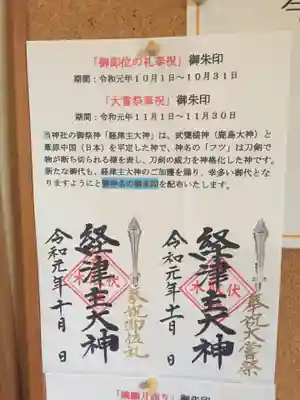 「御即位の礼奉祝」御朱印
期間：令和元年10月1日～10月31日
「大嘗祭奉祝」御朱印
期間：令和元年11月1日～11月30日
当神社の御祭神「経津主大神」は、武甕槌神（鹿島大神）と
葦原中国（日本）を平定した神で、神名の「フツ」は刀剣で
物が断ち切られる様を表し、刀剣の威力を神格化した神です。
新たな御代も、経津主大神のご加護を賜り、幸多い御代とな
りますようにと御神名の御朱印を配布いたします。
奉祝大嘗祭
経津主大神
令和元年十一月 日
奉祝御位礼
経津主大神
令和元年十月 日
御朱印